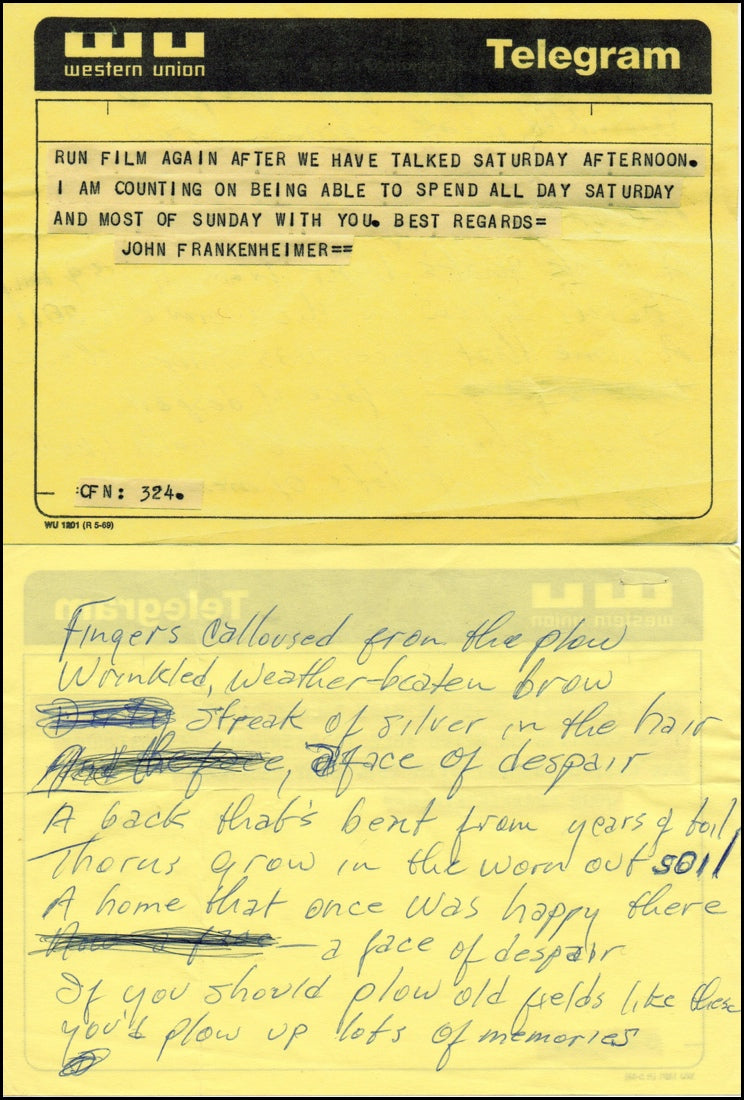 WU
western union
Telegram
RUN FILM AGAIN AFTER WE HAVE TALKED SATURDAY AFTERNOON.
I AM COUNTING ON BEING ABLE TO SPEND ALL DAY SATURDAY
AND MOST OF SUNDAY WITH YOU. BEST REGARDS=
JOHN FRANKENHEIMER==
:CFN: 324.
WU 1201 (R 5-69)
Fingers calloused from the plow
Wrinkled, weather-beaten brow
Streak of silver in the hair
, a face of despair
A back that's bent from years of toil,
Thorns grow in the worn out soil
A home that once was happy there
— a face of despair
If you should plow old fields like these
you'd plow up lots of memories